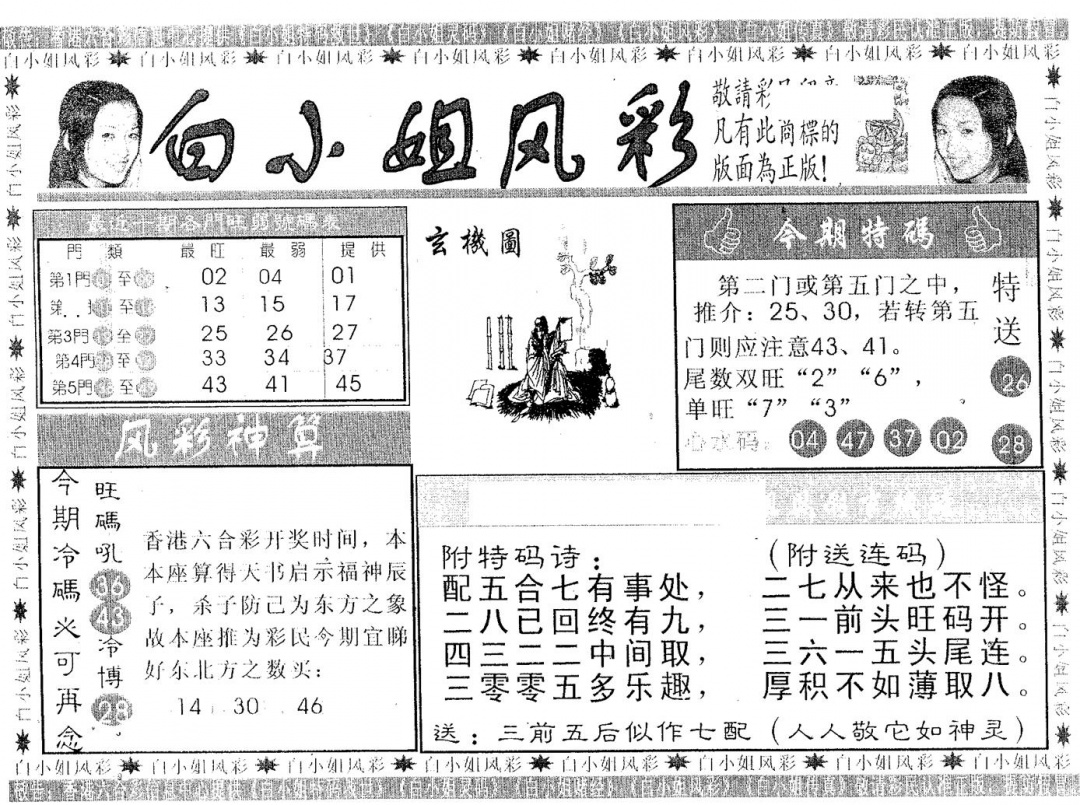 白小姐风彩 白小姐风彩 白小姐风彩 白小姐风彩 白小姐风彩 白小姐风彩 白小姐风彩 白小姐风彩
白小姐风彩
敬請彩
凡有此商標的
版面為正版!
最近十期各門旺弱號碼表
門 類 最旺 最弱 提供
第1門 至 02 04 01
第 至 13 15 17
第3門 至 25 26 27
第4門 至 33 34 37
第5門 至 43 41 45
玄機圖
今期特码
第二门或第五门之中，
推介：25、30，若转第五
门则应注意43、41。
尾数双旺“2”“6”，
单旺“7”“3”
心水码：04 47 37 02
特送
26
28
风彩神算
今期冷碼火可再念
旺碼吼
36
43
冷博
28
香港六合彩开奖时间，本
本座算得天书启示福神辰
子，杀子防己为东方之象
故本座推为彩民今期宜睇
好东北方之数买：
14 30 46
附特码诗： （附送连码）
配五合七有事处， 二七从来也不怪。
二八已回终有九， 三一前头旺码开。
四三二二中间取， 三六一五头尾连。
三零零五多乐趣， 厚积不如薄取八。
送：三前五后似作七配（人人敬它如神灵）
白小姐风彩 白小姐风彩 白小姐风彩 白小姐风彩 白小姐风彩 白小姐风彩 白小姐风彩 白小姐风彩